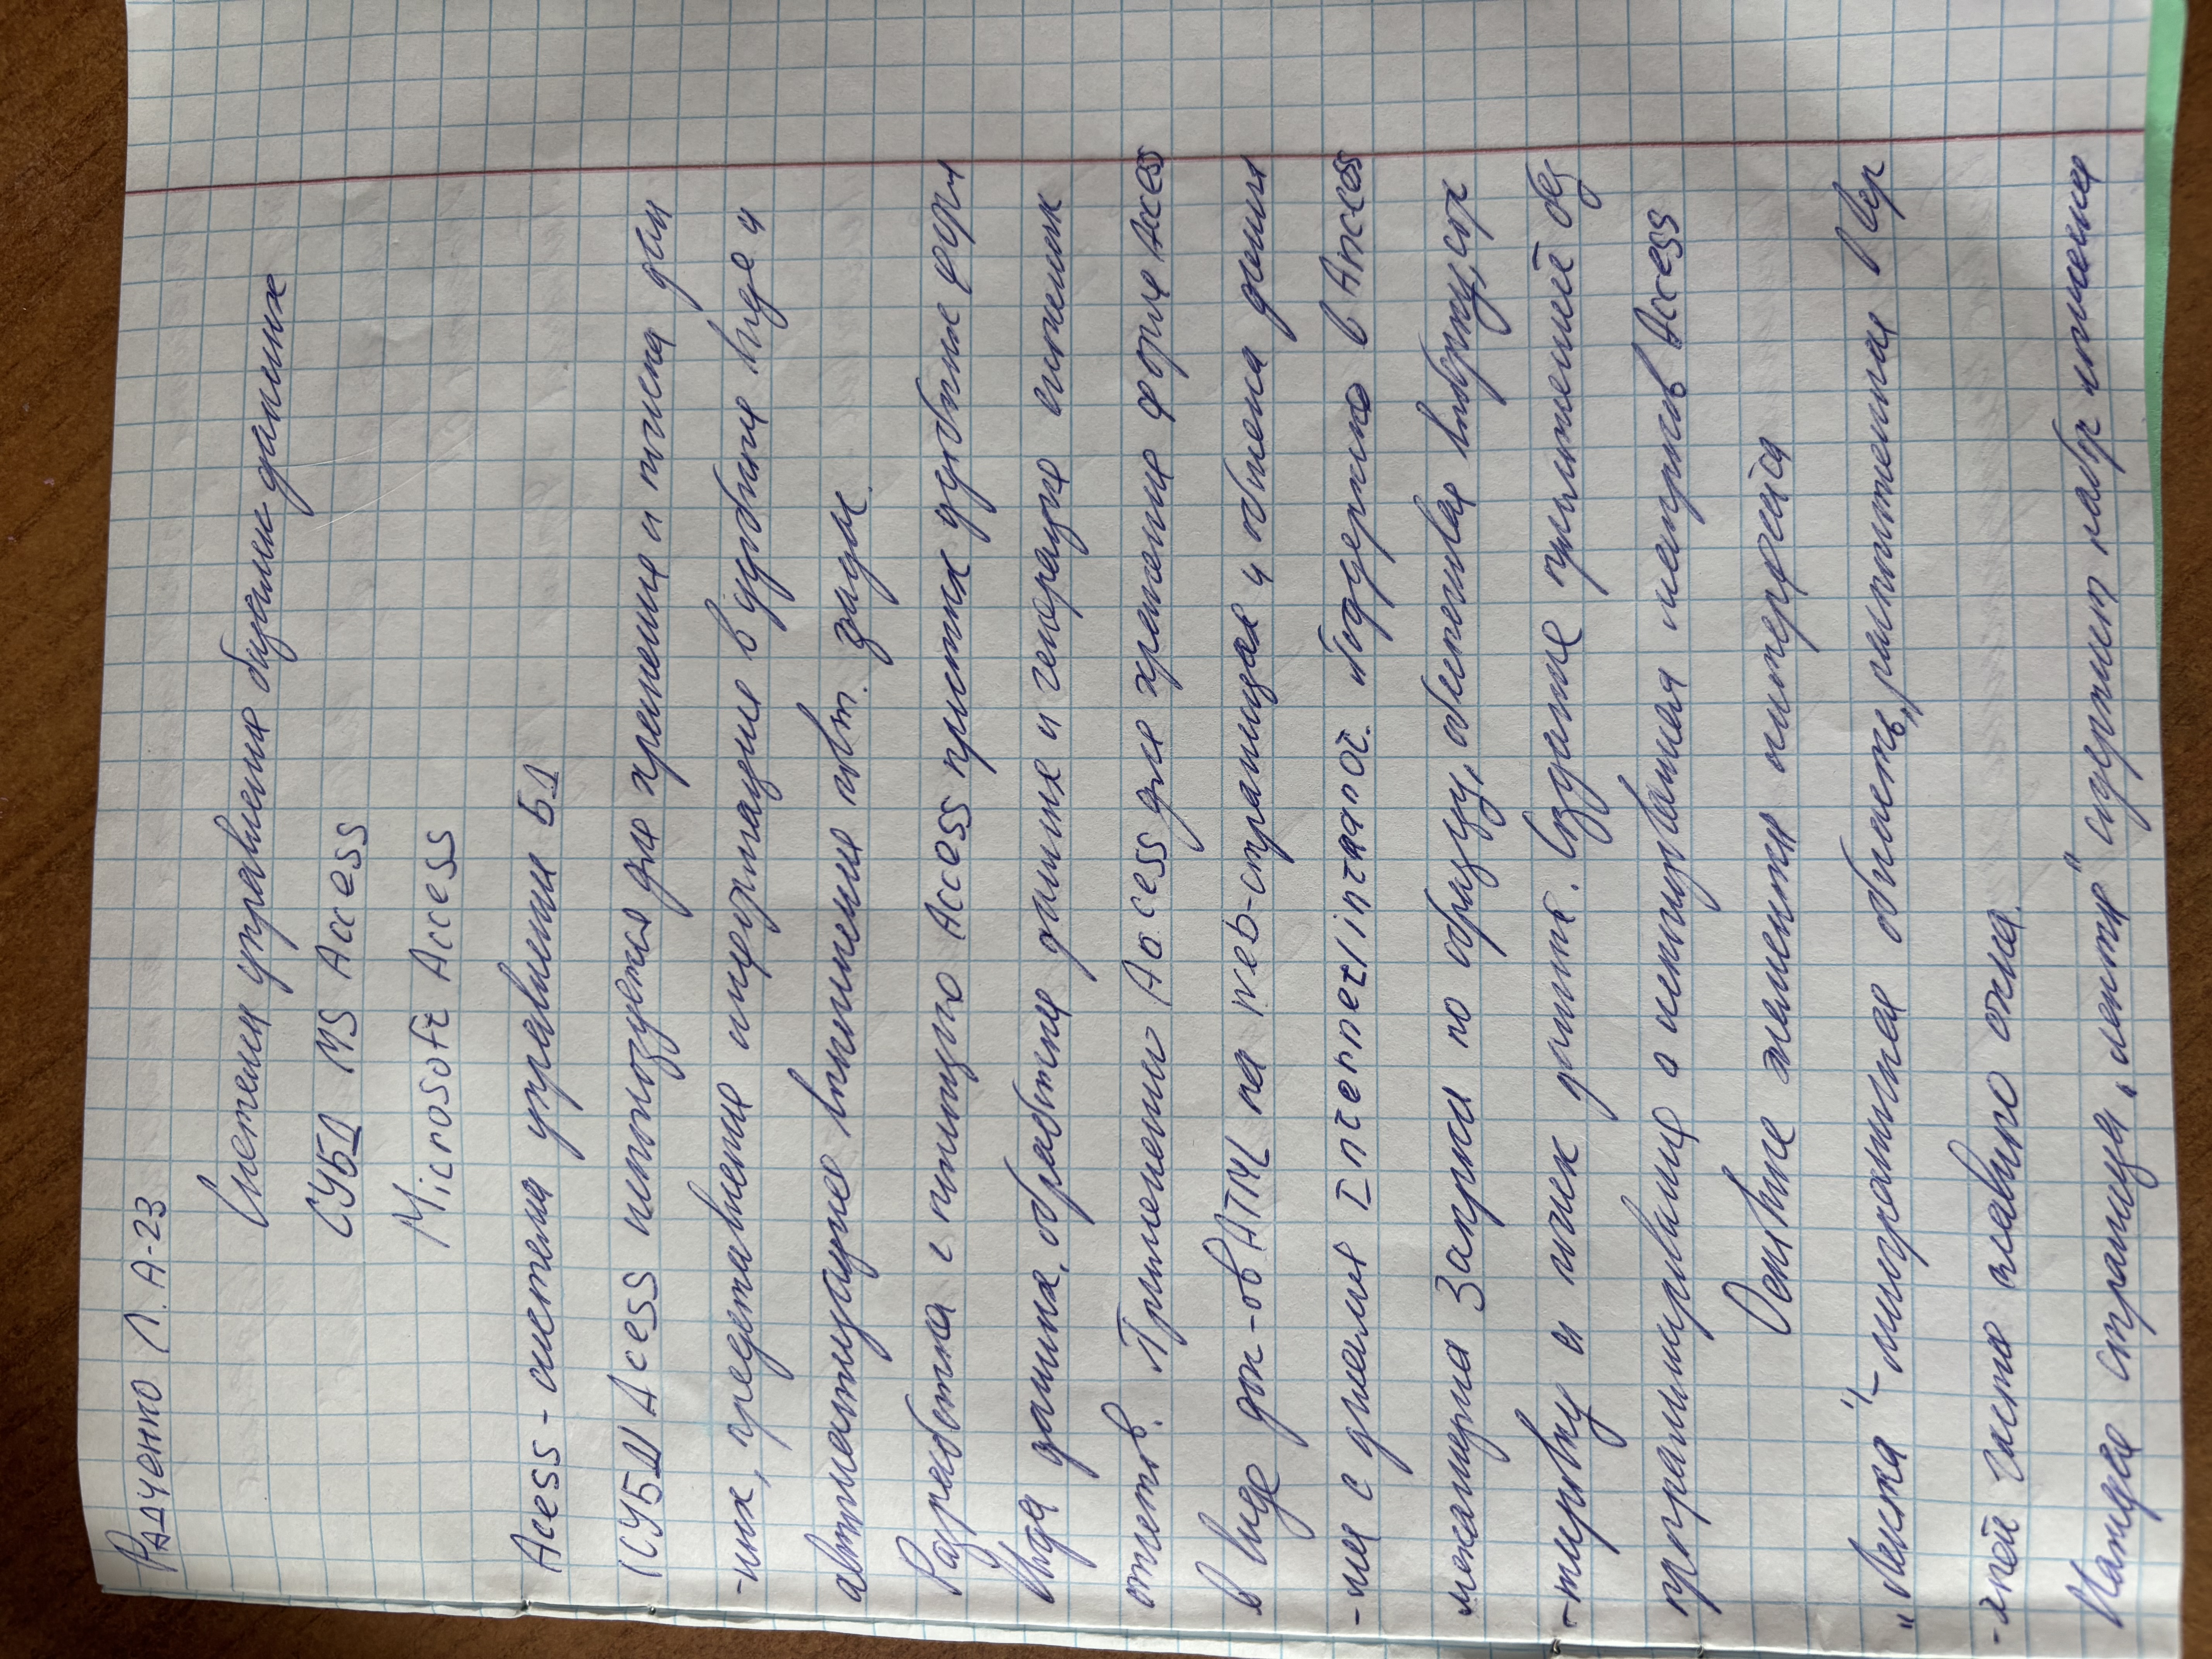 Радченко Л. А-23
Системы управления базами данных
СУБД MS Access
Microsoft Access
Acess - система управления БД
(СУБД) Acess используется для хранения и поиска дан
-ных, представление информации в удобном виде и
автоматизацие выполнения повт. задач.
Разработка с помощью Access простых удобных форм
ввода данных, обработка данных и генерацие сложных
отчетов. Применению Access для хранение форме Access
в виде док-ов HTML на web-страницах и обмена данны
-ми с узлами Internet/intranet. Поддержка в Access
механизма Запроса по образцу, обеспечивая выборку, сор
-тировку и поиск данных. Создание приложений без
программирование с использования макросов Access
Основные элементы интерфейса
"Лента" - многостраничная область, расположенная в вер
-хней части главного окна.
Каждая страница "ленты" содержит набор